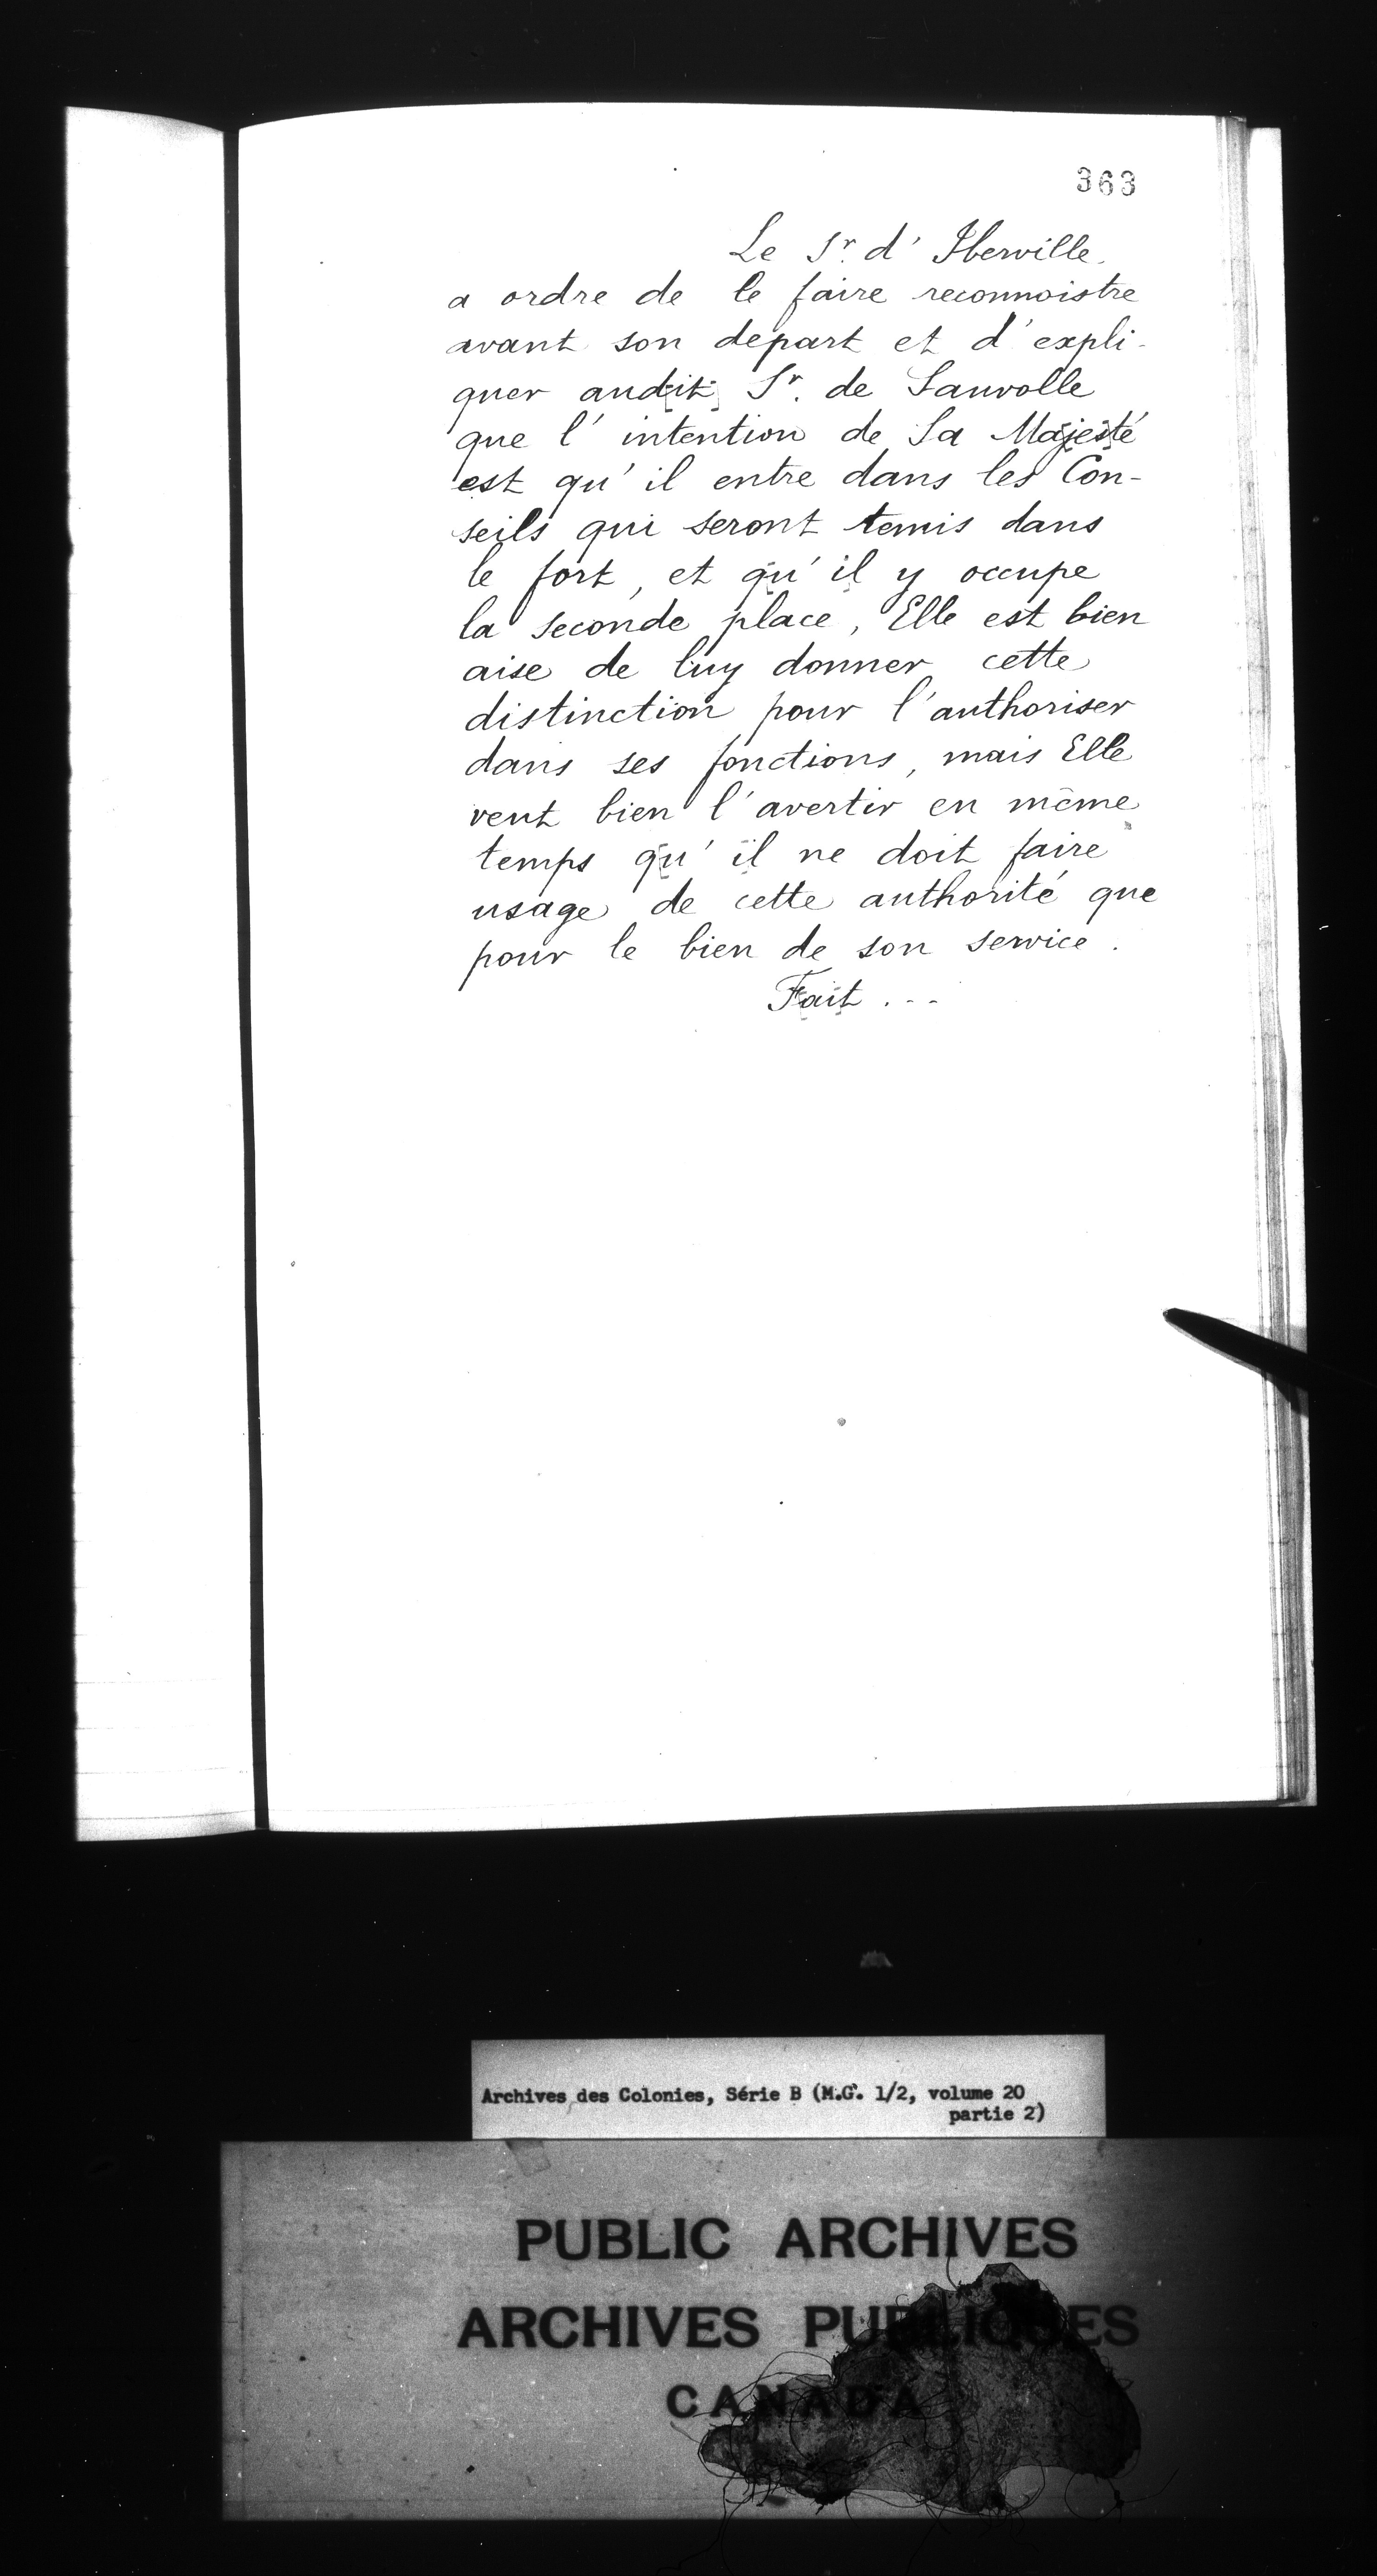 363
Le Sr. d'Iberville
a ordre de le faire reconnoistre
avant son depart et d'expli-
quer audit Sr. de Sauvolle
que l'intention de Sa Majesté
est qu'il entre dans les Con-
seils qui seront tenus dans
le fort, et qu'il y occupe
la seconde place, Elle est bien
aise de luy donner cette
distinction pour l'authoriser
dans ses fonctions, mais Elle
veut bien l'avertir en même
temps qu'il ne doit faire
usage de cette authorité que
pour le bien de son service.
Fait ...
Archives des Colonies, Série B (M.G. 1/2, volume 20
partie 2)
PUBLIC ARCHIVES
ARCHIVES PUBLIQUES
CANADA